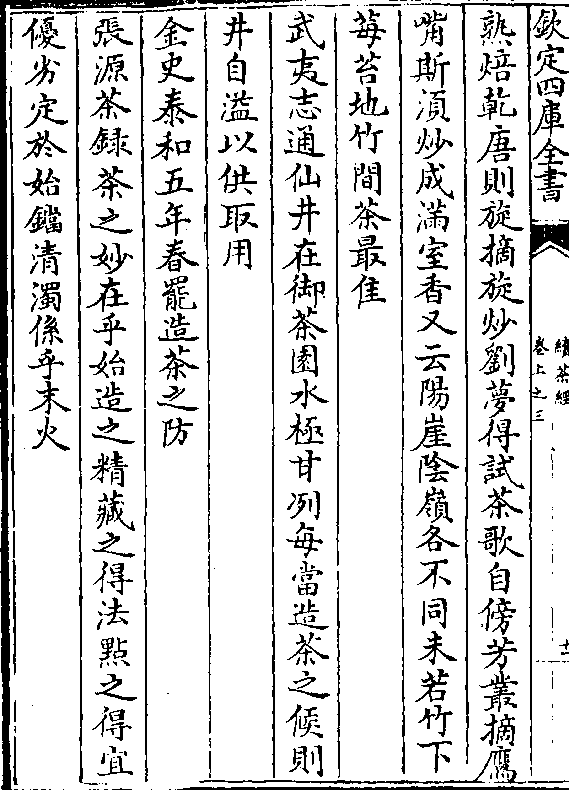 欽定四庫全書
續茶經
卷上之三
十二
熟焙乾唐則旋摘旋炒劉夢得試茶歌自傍芳叢摘鷹
觜斯湏炒成滿室香又云陽崖陰嶺各不同未若竹下
莓苔地竹間茶最佳
武夷志通仙井在御茶園水極甘冽每當造茶之候則
井自溢以供取用
金史泰和五年春罷造茶之防
張源茶録茶之妙在乎始造之精藏之得法㸃之得宜
優劣定於始鐺清濁係乎末火